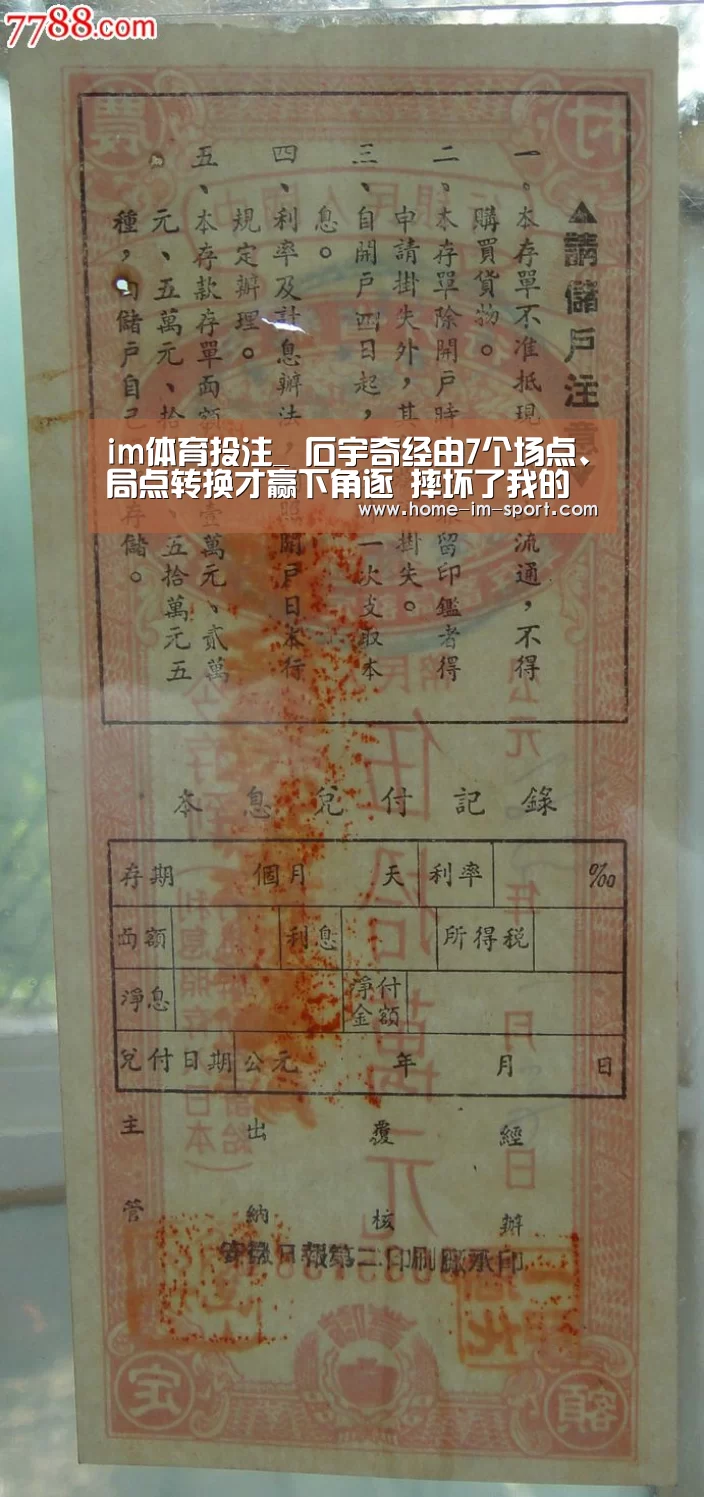 7788.com
農
村
▲請儲戶注意
一。本存單不准抵現 流通,不得
購買貨物。
二、本存單除開戶時 留印鑑者得
申請掛失外,其 掛失。
三、自開戶四日起, 一次支取本
息。
四、利率及計息辦法, 照開戶日本行
規定辦理。
五、本存款存單面額 壹萬元、貳萬
元、五萬元、拾 、五拾萬元五
種, 儲戶自己 存儲。
im体育投注_ 石宇奇经由7个场点、
局点转换才赢下角逐 摔坏了我的
www.home-im-sport.com
本息兌付記錄
存期 個月 天 利率 ‰
面額 利息 所得税
淨息 淨付金額
兌付日期 公元 年 月 日
主管 出納 覆核 經辦
安徽日報第二印刷廠承印
定
額